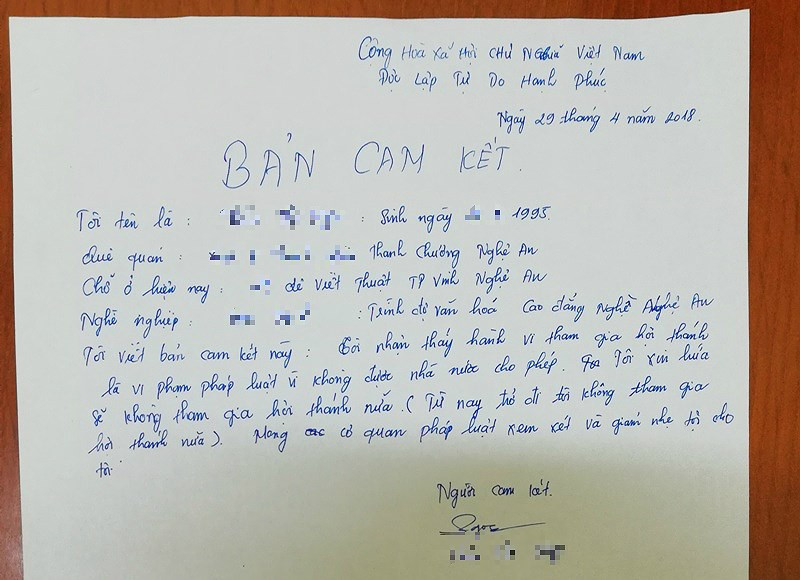 Cộng Hoà Xã Hội Chủ Nghĩa Việt Nam
Độc Lập Tự Do Hạnh Phúc
Ngày 29 tháng 4 năm 2018.
BẢN CAM KẾT.
Tôi tên là : : Sinh ngày 1995.
Quê quán : Thanh Chương Nghệ An
Chỗ ở hiện nay : Lê Viết Thuật TP Vinh Nghệ An
Nghề nghiệp : : Trình độ văn hoá Cao đẳng Nghề Nghệ An
Tôi viết bản cam kết này : Tôi nhận thấy hành vi tham gia hội thánh
là vi phạm pháp luật vì không được nhà nước cho phép. Tôi xin hứa
sẽ không tham gia hội thánh nữa. ( Từ nay trở đi tôi không tham gia
hội thánh nữa ). Mong cơ quan pháp luật xem xét và giảm nhẹ tội cho
tôi.
Người cam kết.
Ngọc